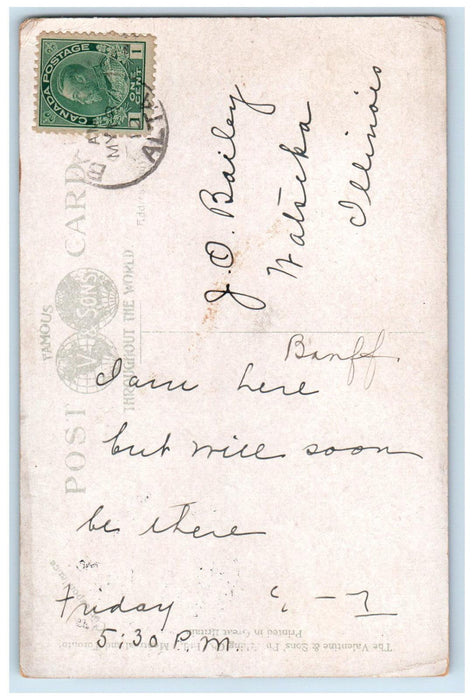 CANADA POSTAGE
1 ONE CENT 1
ALTA
MY
J. O. Bailey
Watseka
Illinois
POST CARD
FAMOUS
V & SONS
THROUGHOUT THE WORLD
Banff
I am here
but will soon
be there
Friday
5:30 P.M.
The Valentine & Sons'
Printed in Great Britain